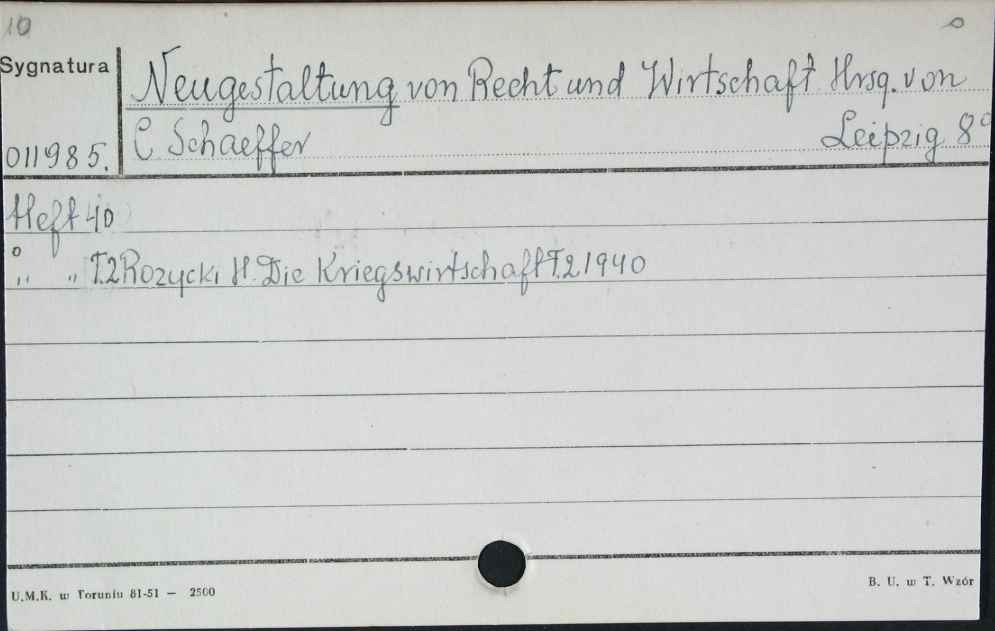 10
Sygnatura
Neugestaltung von Recht und Wirtschaft Hrsg. von
011985. C Schaeffer Leipzig 8°
Heft 40
" " T.2 Rozycki H. Die Kriegswirtschaft T.2 1940
U.M.K. w Toruniu 81-51 — 2500
B. U. w T. Wzór